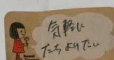 気軽に
たちよりたい